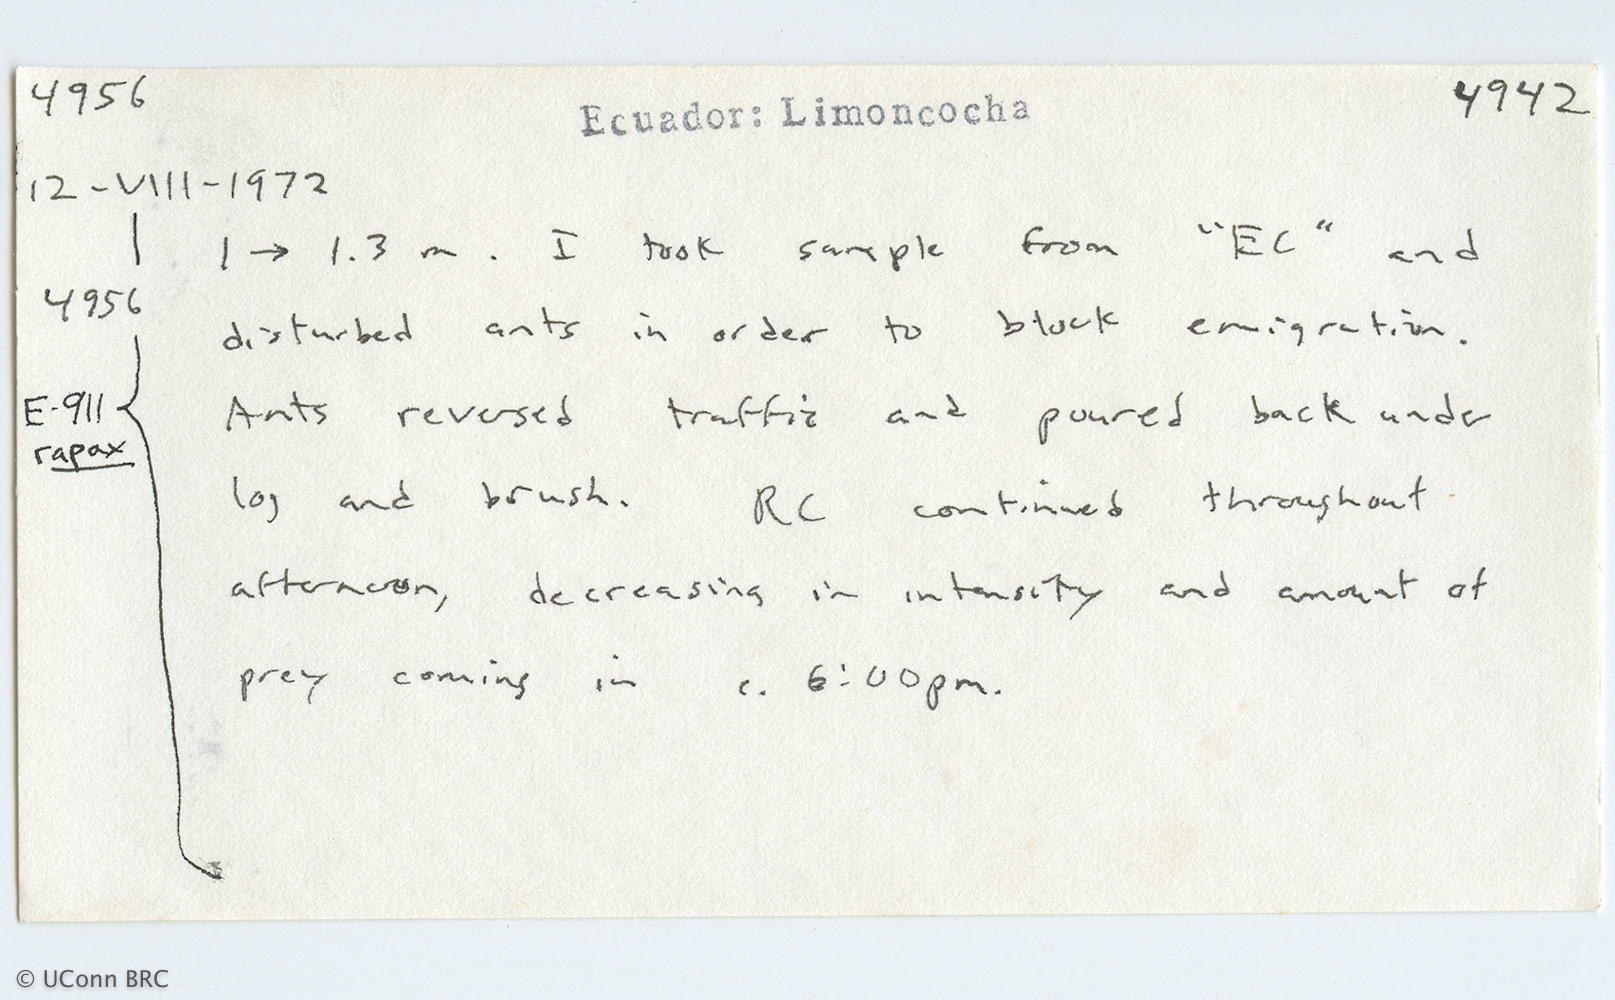 4956
Ecuador: Limoncocha
4942
12-VIII-1972
1 → 1.3 m. I took sample from "EC" and
4956
disturbed ants in order to block emigration.
E-911
rapax
Ants reversed traffic and poured back under
log and brush. RC continued throughout
afternoon, decreasing in intensity and amount of
prey coming in c. 6:00pm.
© UConn BRC